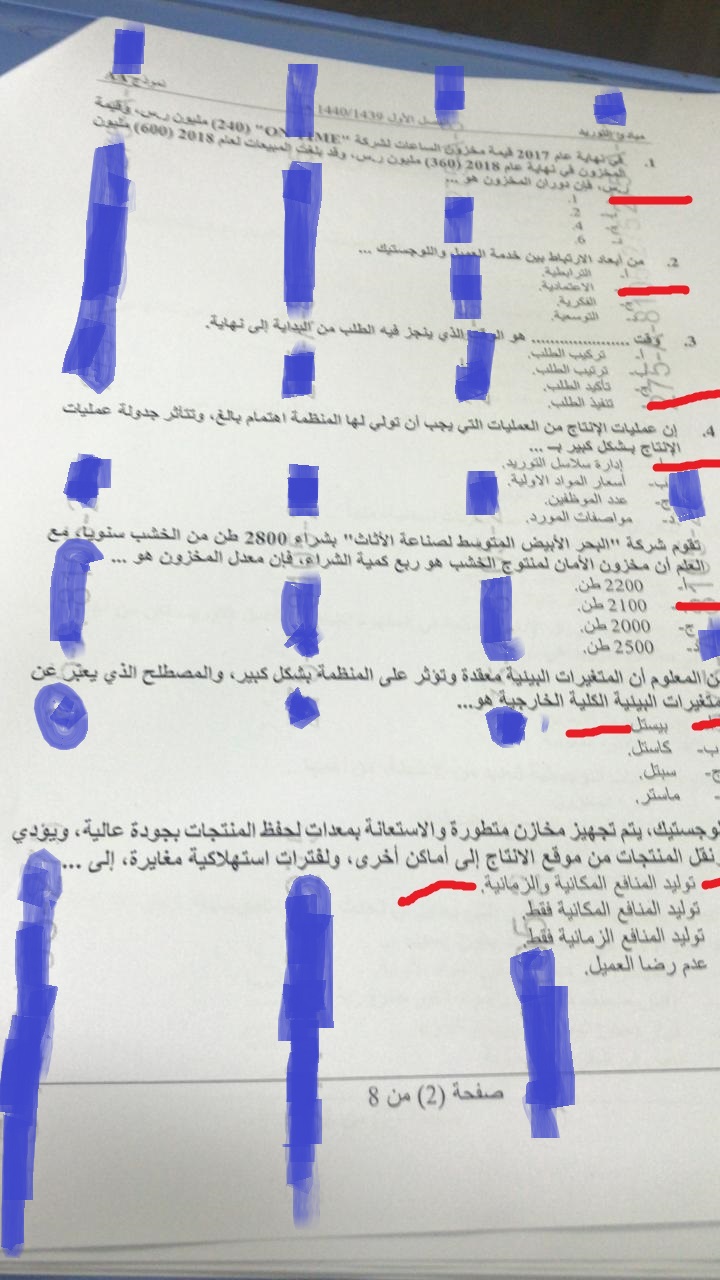 مبادئ التوريد الفصل الأول 1440/1439 نموذج AA
1. في نهاية عام 2017 قيمة مخزون الساعات لشركة "ON TIME" (240) مليون ر.س، وقيمة
المخزون في نهاية عام 2018 (360) مليون ر.س، وقد بلغت المبيعات لعام 2018 (600) مليون
ر.س، فإن دوران المخزون هو ...
1.
2.
4.
6.
2. من أبعاد الارتباط بين خدمة العميل واللوجستيك ...
أ- الترابطية.
الاعتمادية.
ج- الفكرية.
التوسعية.
3. وقت .................... هو الذي ينجز فيه الطلب من البداية إلى نهاية.
أ- تركيب الطلب.
ب- ترتيب الطلب.
تأكيد الطلب.
تنفيذ الطلب.
4. إن عمليات الإنتاج من العمليات التي يجب أن تولي لها المنظمة اهتمام بالغ، وتتأثر جدولة عمليات
الإنتاج بشكل كبير بـ ...
أ- إدارة سلاسل التوريد.
ب- أسعار المواد الاولية.
ج- عدد الموظفين.
د- مواصفات المورد.
تقوم شركة "البحر الأبيض المتوسط لصناعة الأثاث" بشراء 2800 طن من الخشب سنويا، مع
العلم أن مخزون الأمان لمنتوج الخشب هو ربع كمية الشراء، فإن معدل المخزون هو ...
أ- 2200 طن.
2100 طن.
ج- 2000 طن.
د- 2500 طن.
المعلوم أن المتغيرات البيئية معقدة وتؤثر على المنظمة بشكل كبير، والمصطلح الذي يعبر عن
متغيرات البيئية الكلية الخارجية هو...
بيستل
ب- كاستل.
ج- سبتل.
- ماستر.
لوجستيك، يتم تجهيز مخازن متطورة والاستعانة بمعدات لحفظ المنتجات بجودة عالية، ويؤدي
نقل المنتجات من موقع الانتاج إلى أماكن أخرى، ولفترات استهلاكية مغايرة، إلى ...
توليد المنافع المكانية والزمانية.
توليد المنافع المكانية فقط.
توليد المنافع الزمانية فقط.
عدم رضا العميل.
صفحة (2) من 8